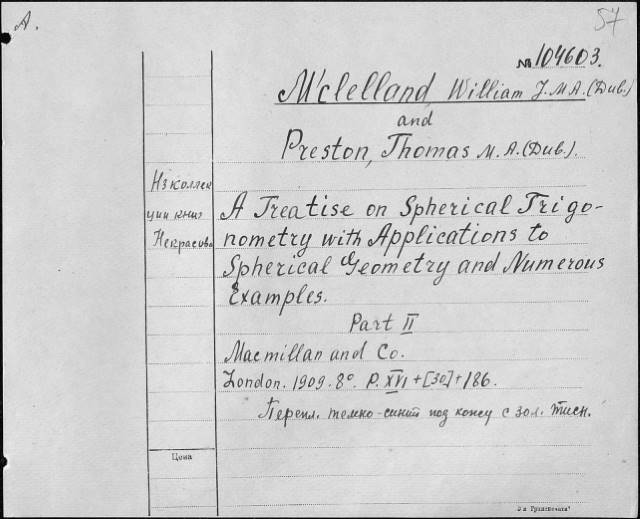 А.
57
№104603.
McLelland, William J. M.A. (Dub.)
and
Preston, Thomas M.A. (Dub.).
Из коллек
ции книг
Некрасова
A Treatise on Spherical Trigo-
nometry with Applications to
Spherical Geometry and Numerous
Examples.
Part II
Macmillan and Co.
London. 1909. 8°. P. XVI + [30] + 186.
Перепл. темно-синий под кожу с зол. тисн.
Цена